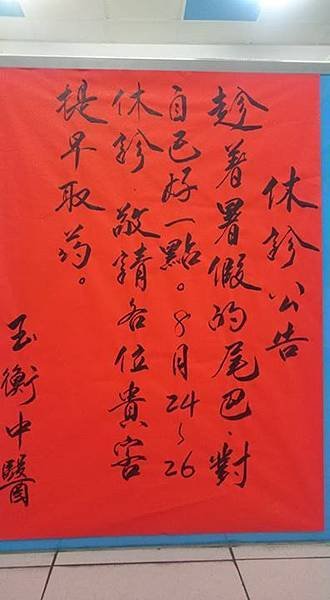 休診公告
趁着暑假的尾巴.對
自己好一點。8月24~26
休診 敬請各位貴客
提早取药。
玉衡中醫